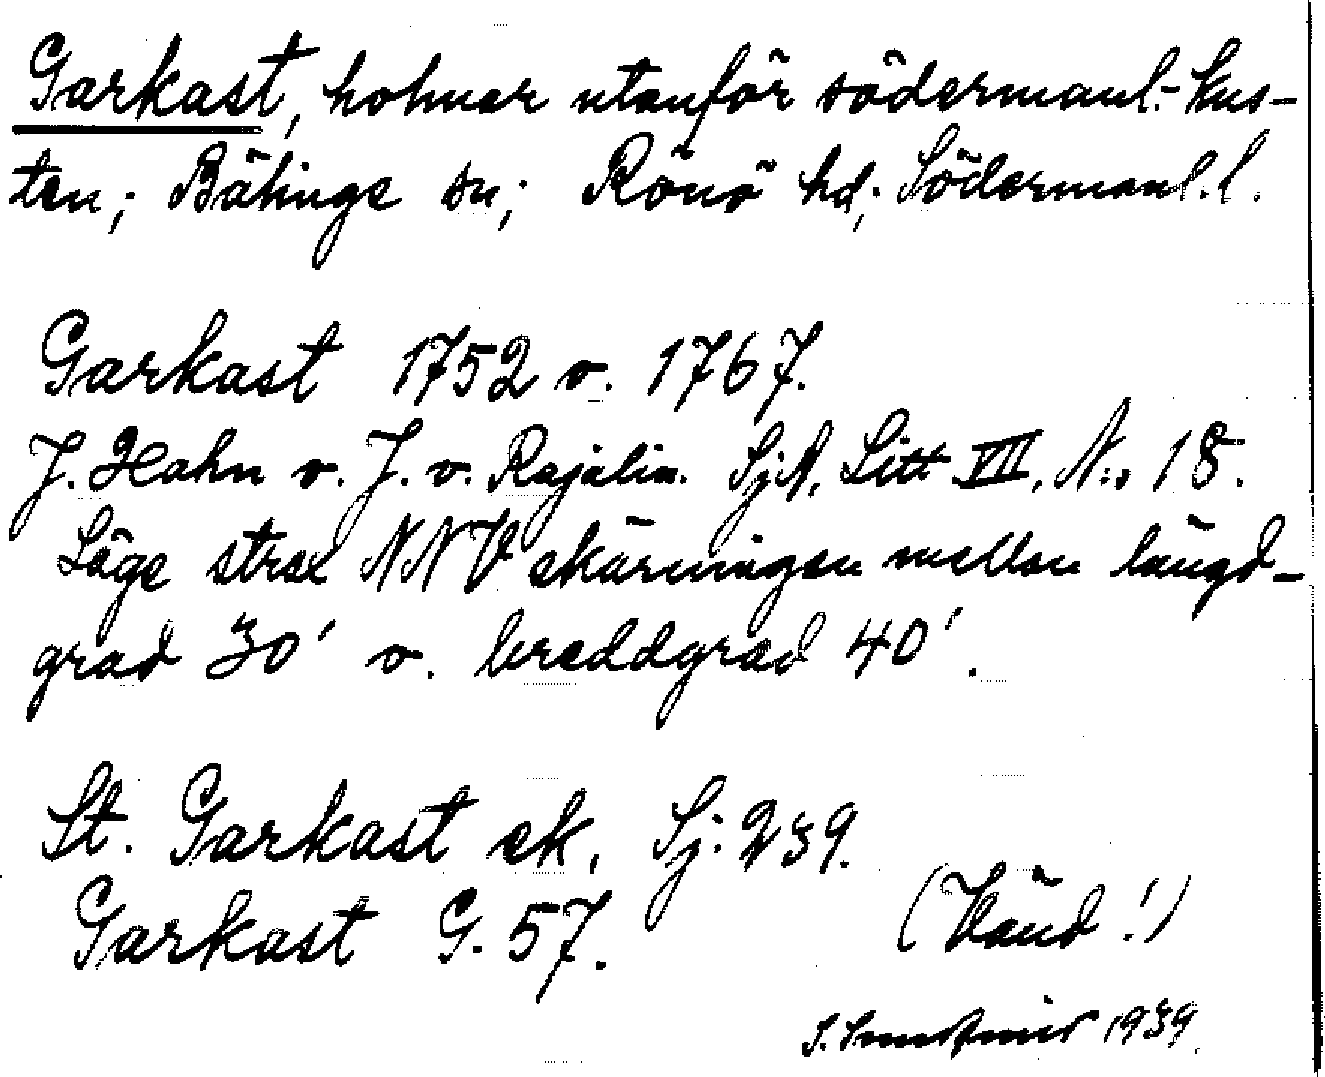 Garkast, holmar utanför södermanl.-kus-
ten; Bälinge sn; Rönö hd; Södermanl. l.
Garkast 1752 o. 1767.
J. Hahn o. J. v. Rajalin. SjA, Litt VII, N:o 18.
Läge strax NNV skärningen mellan längd-
grad 30' o. breddgrad 40'.
St. Garkast ek, Sj: 239.
Garkast G. 57.
(Vänd!)
S. 1939.